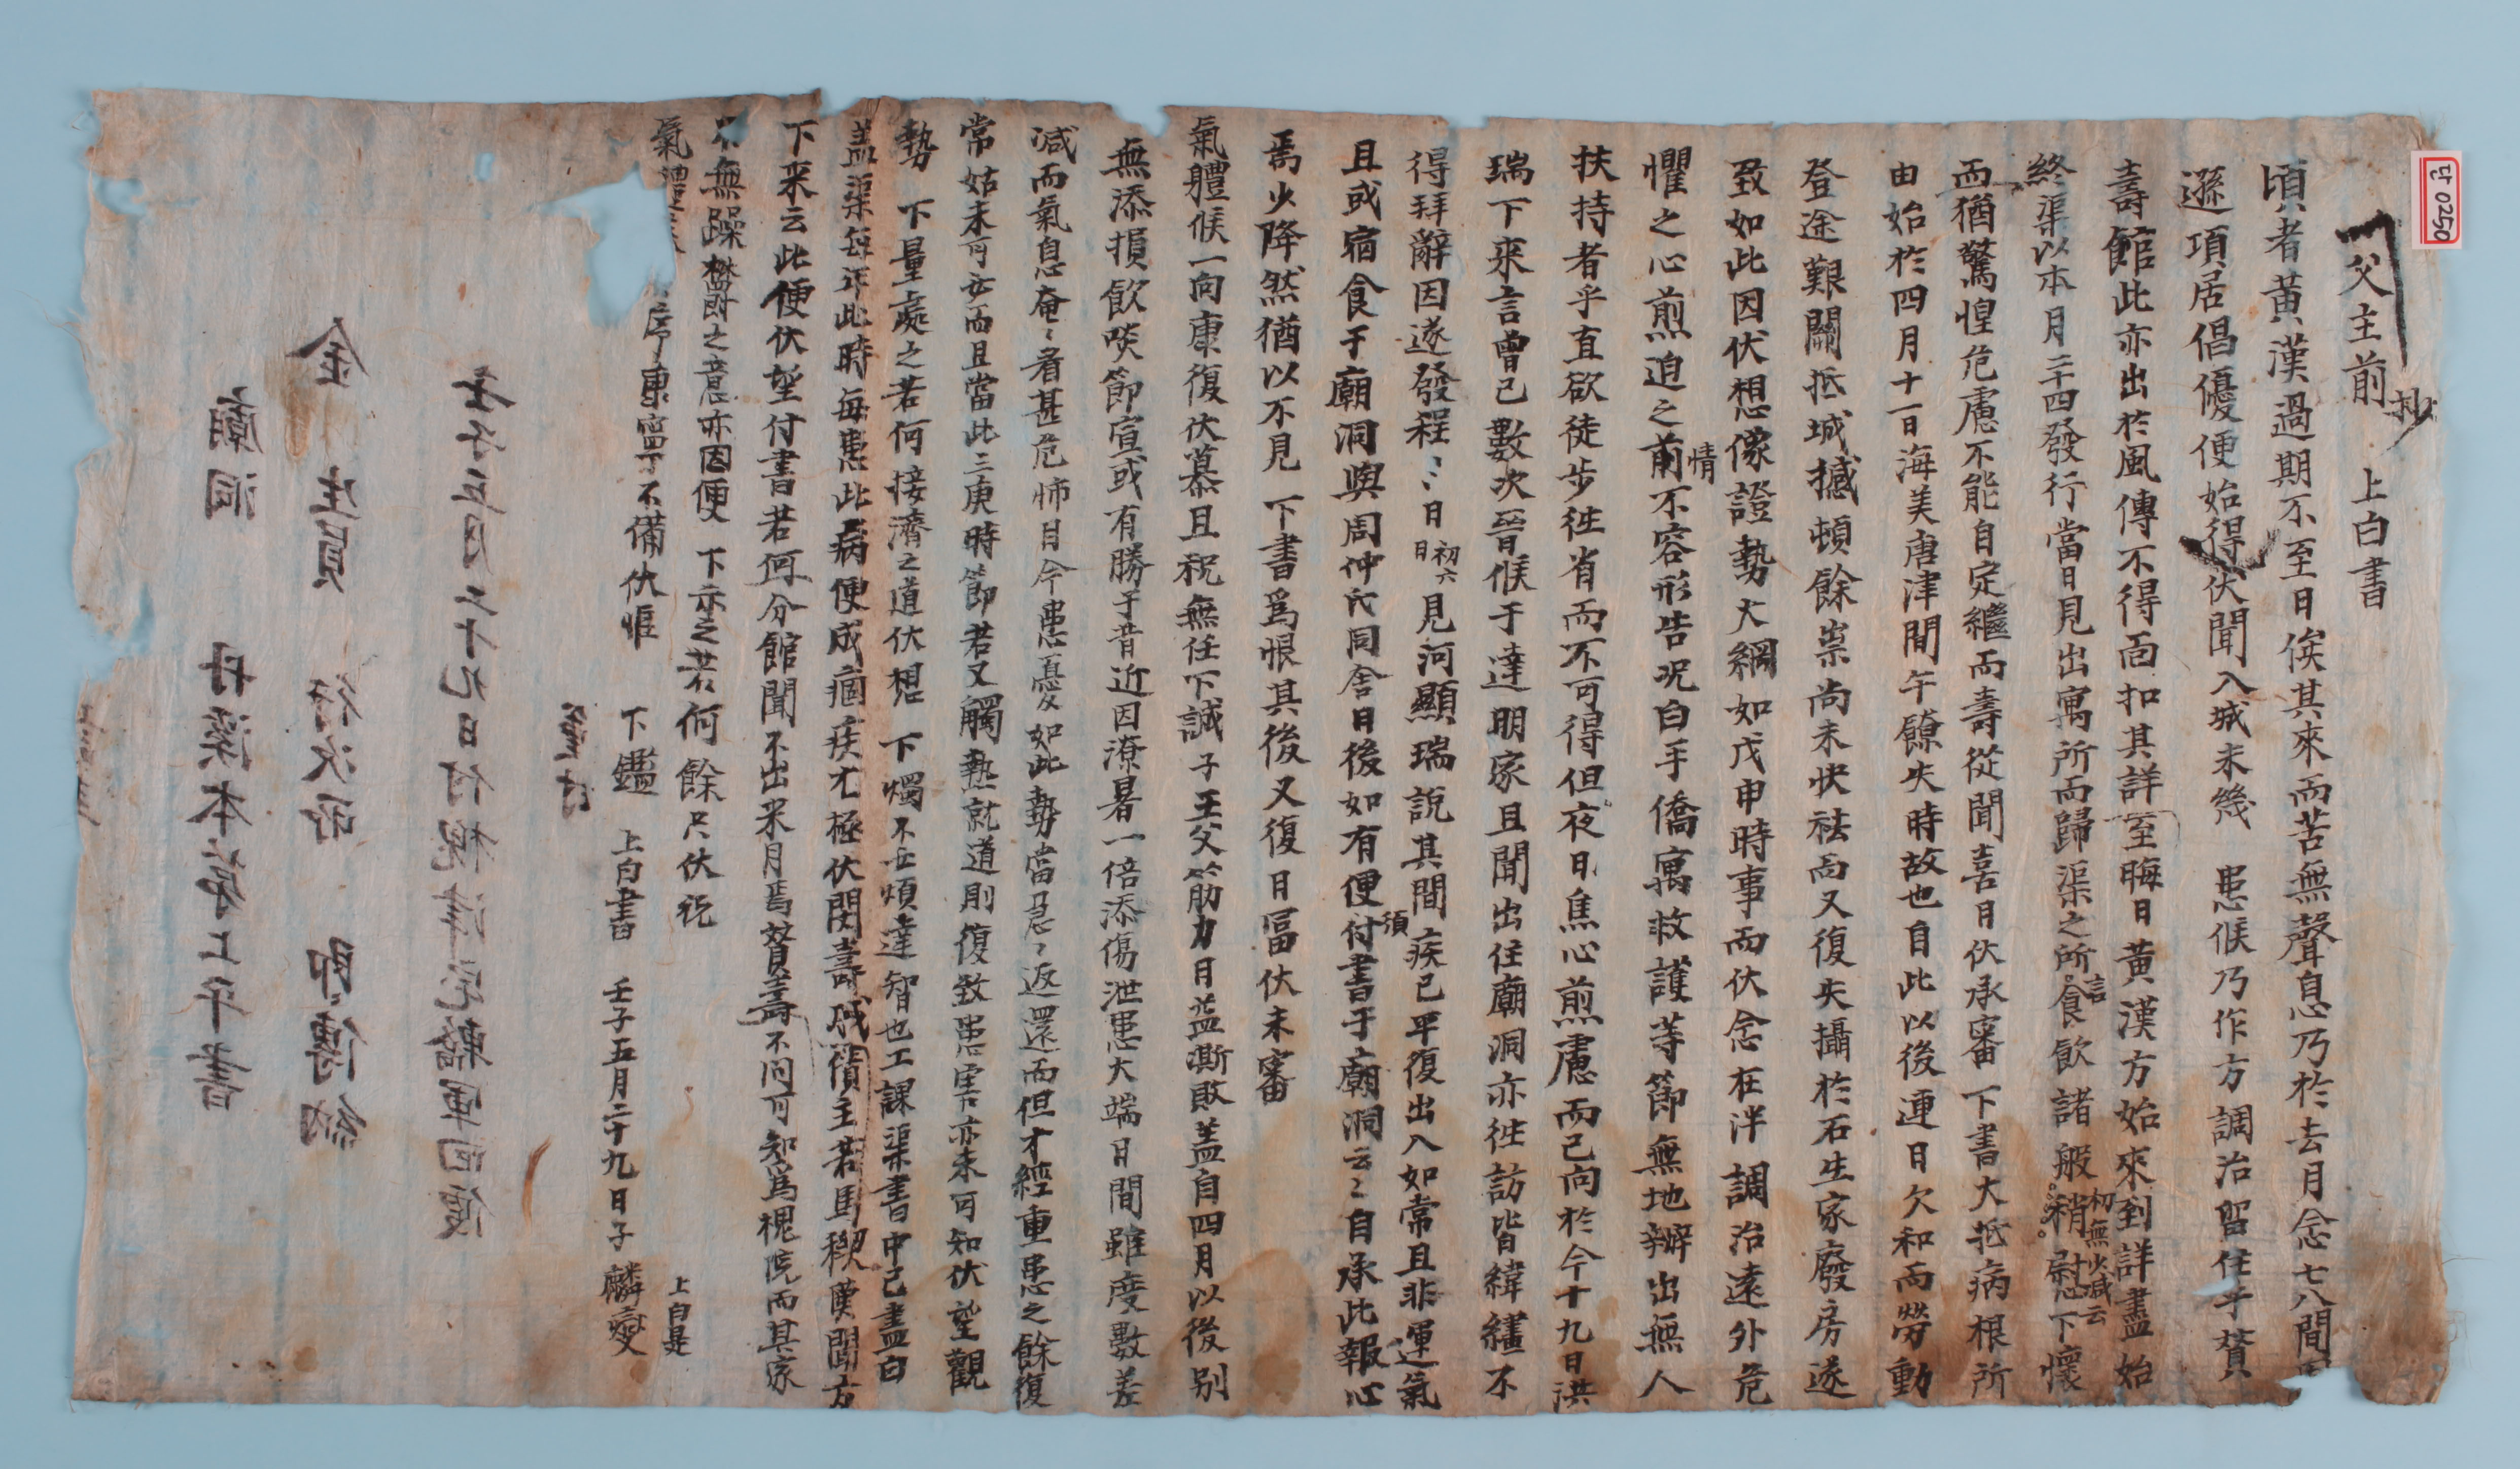 단0250
父主前 上白書
抄
頃者黃漢過期不至日俟其來而苦無聲息乃於去月念七八間因
遜項居倡優便始得伏聞入城未幾 患候乃作方調治留住乎賛
壽館此亦出於風傳不得面扣其詳至晦日黃漢方始來到詳盡始
終渠以本月二十四發行當日見出寓所而歸渠之所言食飮諸般稍慰下懷
初無少減云
而猶驚惶危慮不能自定繼而壽從聞喜日伏承審 下書大抵病根所
由始於四月十一日海美唐津間午饒失時故也自此以後連日欠和而勞動
登途艱關抵城撼頓餘祟尚未快祛而又復失攝於石生家廢房遂
致如此因伏想像證勢大綱如戊申時事而伏念在泮調治遠外危
懼之心煎迫之情前不容形告况白手僑寓救護等節無地辦出無人
扶持者乎直欲徒步徃省而不可得但夜日焦心煎慮而已向於今十九日洪
瑞下來言曾已數次晉候于達明家且聞出住廟洞亦徃訪皆緯繣不
得拜辭因遂發程〻〻日初六日見河顯瑞說其間疾已平復出入如常且非運氣
且或宿食于廟洞與周仲氏同舍日後如有便須付書于廟洞云〻自承此報心
焉少降然猶以不見 下書爲恨其後又復日富伏未審
氣體候一向康復伏慕且祝無任下誠子王父筋力日益澌敗盖自四月以後别
無添損飮啖節宣或有勝于昔近因潦暑一倍添傷泄患大端日間雖度數差
減而氣息奄〻看甚危怖目今患憂如此勢當急〻返還而但才經重患之餘復
常姑未可必而且當此三庚時節若又觸熱就道則復致患害亦未可知伏望觀
勢 下量處之若何接濟之道伏想 下燭不必煩達智也工課渠書中已盡白
盖渠每年此時每患此病便成痼疾尤極伏閔壽城 主若馬 聞方
下來云此便伏望付書若何分館聞不出來月焉賛壽不問可知爲槐院而其家
不無躁鬱之意亦因便 下示之若何餘只伏祝
氣體 序康寧不備伏惟
下鑑 上白書 壬子五月二十九日子 麟燮
上白是
謹封
壬子五月二十九日付槐津宅 便
金 生員 行次所 即傳納
廟洞 丹溪本第上平書